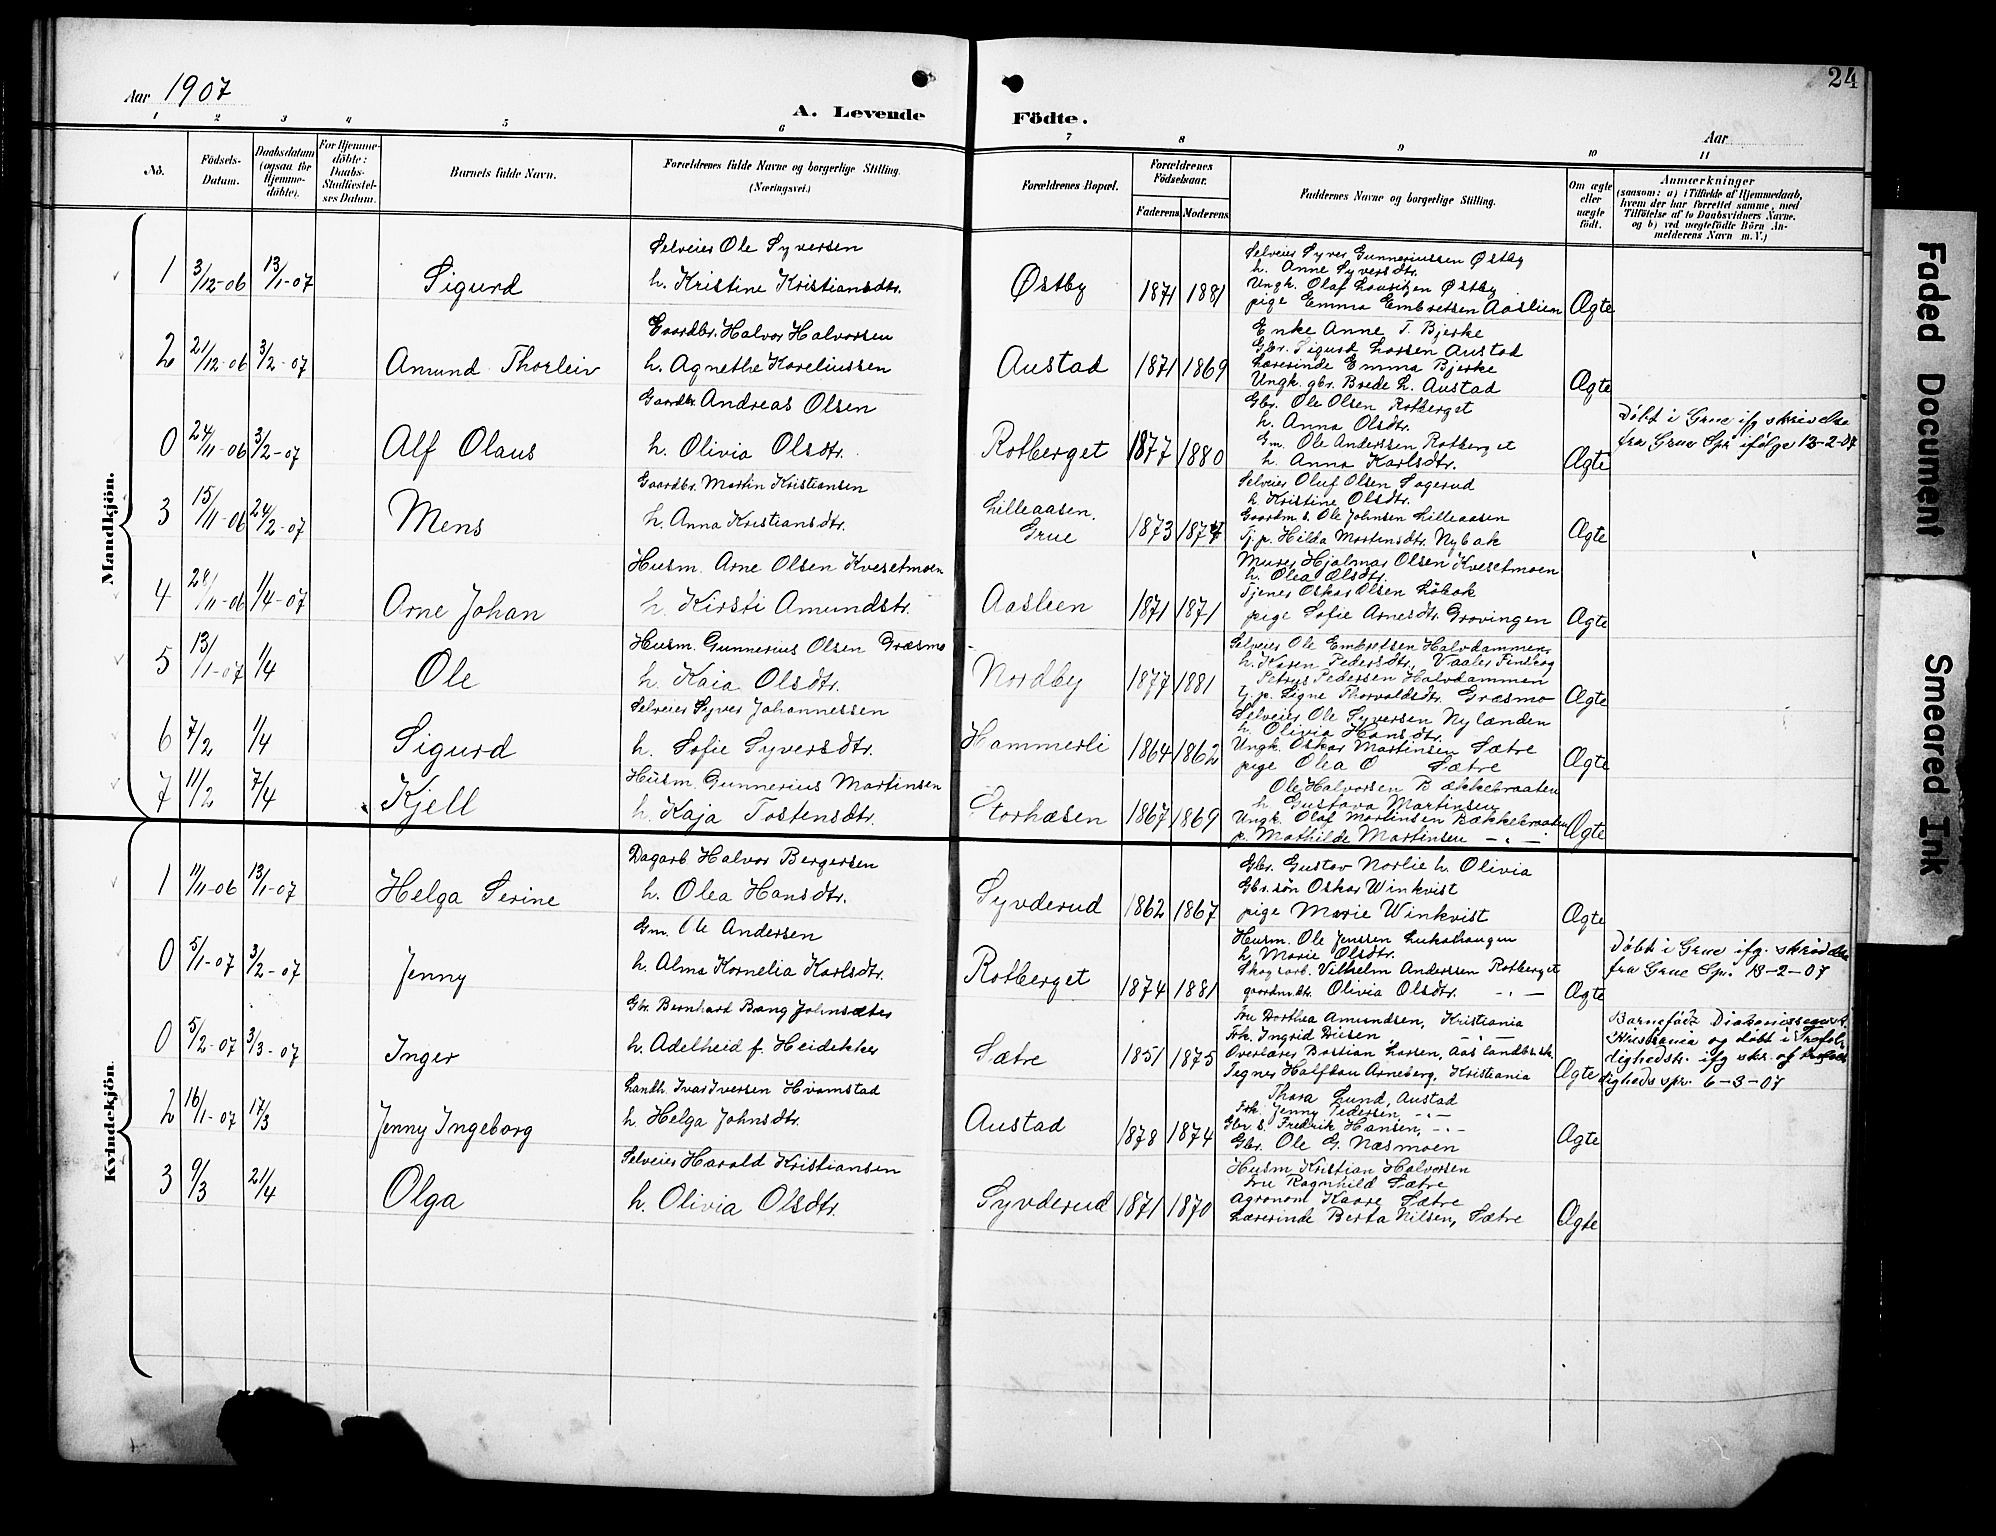 24
Aar 1907
A. Levende Födte.
Aar
1 2 3 4 5 6 7 8 9 10 11
No.
Födsels-Datum.
Daabsdatum (ogsaa för Hjemme-döbte).
For Hjemme-döbte: Daabs-Stadfæstel-ses Datum.
Barnets fulde Navn.
Forældrenes fulde Navne og borgerlige Stilling. (Næringsvei.)
Forældrenes Bopæl.
Forældrenes Födselsaar.
Faderens Moderens
Faddernes Navne og borgerlige Stilling.
Om ægte eller uægte födt.
Anmærkninger
(saasom: a) i Tilfælde af Hjemmedaab,
hvem der har forrettet samme, med
Tilföielse af to Daabsvidners Navne.
og b) ved uægtefödte Börn An-
melderens Navn m. V.)
Mandkjön.
1 3/12-06 13/1-07 Sigurd
Selveier Ole Syversen
h. Kristine Kristiansdtr.
Østby 1871 1881
Selveier Syver Gunneriussen Østby
h. Anne Syversdtr.
Ungk. Olaf Lauritzen Østby
pige Emma Embretsen Aaslien
Ægte
2 21/12-06 3/2-07 Amund Thorleiv
Gaardbr. Halvor Halvorsen
h. Agnethe Koreliussen
Austad 1871 1869
Enke Anne T. Bjerke
Gbr. Sigurd Larsen Austad
Lærerinde Emma Bjerke
Ungk. gbr. Brede H. Austad
Ægte
0 24/11-06 3/2-07 Alf Olaus
Gaardbr. Andreas Olsen
h. Olivia Olsdtr.
Rotberget 1877 1880
Gbr. Ole Olsen Rotberget
h. Anna Olsdtr.
Gm. Ole Anderssen Rotberget
h. Anna Karlsdtr.
Ægte
Døbt i Grue ifg skrivelse
fra Grue Spr. ifølge 13-2-07
3 15/11-06 24/2-07 Mens
Gaardbr. Martin Kristiansen
h. Anna Kristiansdtr.
Lilleaasen.
Grue
1873 1877
Selveier Oluf Olsen Sagerud
h Kristine Olsdtr.
Gaardm. s. Ole Johnsen Lilleaasen
Tj. p. Hilda Mortensdtr. Nybak
Ægte
4 28/11-06 1/4-07 Arne Johan
Husm. Arne Olsen Kvesetmoen
h. Kirsti Amundstr.
Aaslien 1871 1871
Murer Hjalmar Olsen Kvesetmoen
h. Olea Olsdtr.
Tjener Oskar Olsen Løbak
pige Sofie Arnesdtr. Grovingen
Ægte
5 13/1-07 1/4 Ole
Husm. Gunnerius Olsen Græsmo
h. Kaia Olsdtr.
Nordby 1877 1881
Selveier Ole Embretsen Halvdammen
h. Karen Pedersdtr. Vaaler Finskog
Petrus Pedersen Halvdammen
Tj. p. Signe Thorvaldsdtr. Græsmo
Ægte
6 7/2 1/4 Sigurd
Selveier Syver Johannessen
h. Sofie Syversdtr.
Hammerli 1864 1862
Selveier Ole Syversen Nylænden
h. Olivia Hansdtr.
Ungk. Oskar Martinsen Sætre
pige Olea O Sætre
Ægte
7 11/2 7/4 Kjell
Husm. Gunnerius Martinsen
h. Kaja Tostensdtr.
Storhæsen 1867 1869
Ole Halvorsen Bækkebraaten
h. Gustava Martinsen
Ungk. Olaf Martinsen Bækkebraaten
p. Mathilde Martinsen -"-
Ægte
Kvindekjön.
1 11/11-06 13/1-07 Helga Serine
Dagarb Halvor Bergersen
h. Olea Hansdtr.
Syvderud 1862 1867
Gbr. Gustav Norlie h. Olivia
Gbr. søn Oskar Winkvist
pige Marie Winkvist
Ægte
0 5/1-07 3/2-07 Jenny
Gm. Ole Andersen
h. Alma Kornelia Karlsdtr.
Rotberget 1874 1881
Husm. Ole Jenssen Lukashaugen
h. Marie Olsdtr.
Skogsarb. Vilhelm Anderssen Rotberget
gaardmdtr. Olivia Olsdtr. -"-
Ægte
Døbt i Grue ifg. skrivelse
fra Grue Spr. 13-2-07
0 5/2-07 3/3-07 Inger
Gbr. Bernhard Bang Johnsæter
h. Adelheid f. Heidekker
Sætre 1851 1875
Fru Dorthea Amundsen, Kristiania
Frk. Ingrid Diesen -"-
Overlærer Bastian Larsen, Aas landbr.sk.
Tegner Halfdan Arneberg, Kristiania
Ægte
Barnefødt Diakonissegaard.
Kristiania og døbt i Trefol-
dighedsk. ifg skr. af Trefol-
digheds spr. 6-3-07
2 16/1-07 17/3 Jenny Ingeborg
Landh. Ivar Iversen Hvamstad
h Helga Johnsdtr.
Austad 1878 1874
Thora Lund, Austad
Frk. Jenny Pedersen, -"-
Gbr. s. Fredrik Hansen, -"-
Gbr. Ole G. Næsmoen
Ægte
3 9/3 21/4 Olga
Selveier Harald Kristiansen
h. Olivia Olsdtr.
Syvderud 1871 1870
Husm Kristian Halvorsen
Fru Ragnhild Sætre
Agronom Kaare Sætre
Lærerinde Berta Nilsen, Sætre
Ægte
Faded Document
Smeared Ink